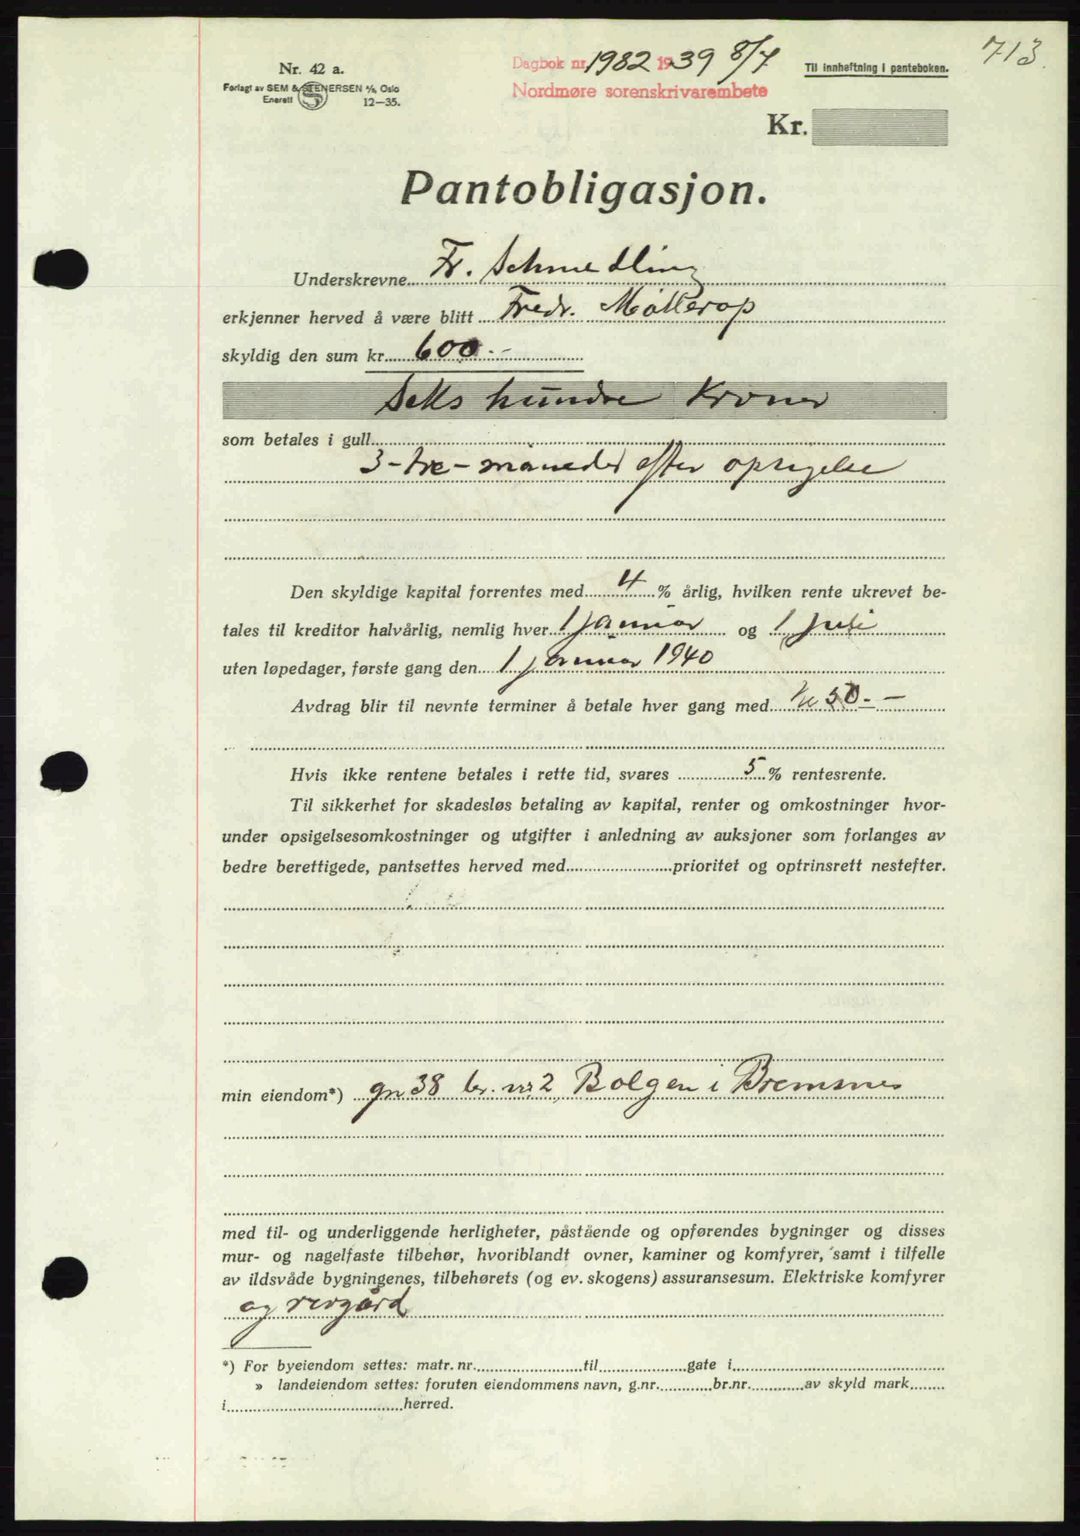 713.
Dagbok nr. 1982 1939 8/7
Nordmøre sorenskrivarembete
Til innheftning i panteboken.
Nr. 42 a.
Forlagt av SEM & STENERSEN A/S, Oslo
Enerett 12—35.
Kr.
Pantobligasjon.
Underskrevne Fr. Schmedling
erkjenner herved å være blitt Fredr. Møllerop
skyldig den sum kr. 600.-
Seks hundre Kroner
som betales i gull
3-tre-måneder efter opsigelse
Den skyldige kapital forrentes med 4 % årlig, hvilken rente ukrevet be-
tales til kreditor halvårlig, nemlig hver 1 januar og 1 juli
uten løpedager, første gang den 1 januar 1940
Avdrag blir til nevnte terminer å betale hver gang med kr 50.-
Hvis ikke rentene betales i rette tid, svares 5 % rentesrente.
Til sikkerhet for skadesløs betaling av kapital, renter og omkostninger hvor-
under opsigelsesomkostninger og utgifter i anledning av auksjoner som forlanges av
bedre berettigede, pantsettes herved med prioritet og optrinsrett nestefter.
min eiendom*) gn 38 br. nr. 2, Bolgen i Bremsnes
med til- og underliggende herligheter, påstående og opførendes bygninger og disses
mur- og nagelfaste tilbehør, hvoriblandt ovner, kaminer og komfyrer, samt i tilfelle
av ildsvåde bygningenes, tilbehørets (og ev. skogens) assuransesum. Elektriske komfyrer
og revgård
*) For byeiendom settes: matr. nr. til gate i
» landeiendom settes: foruten eiendommens navn, g.nr. br.nr. av skyld mark
i herred.